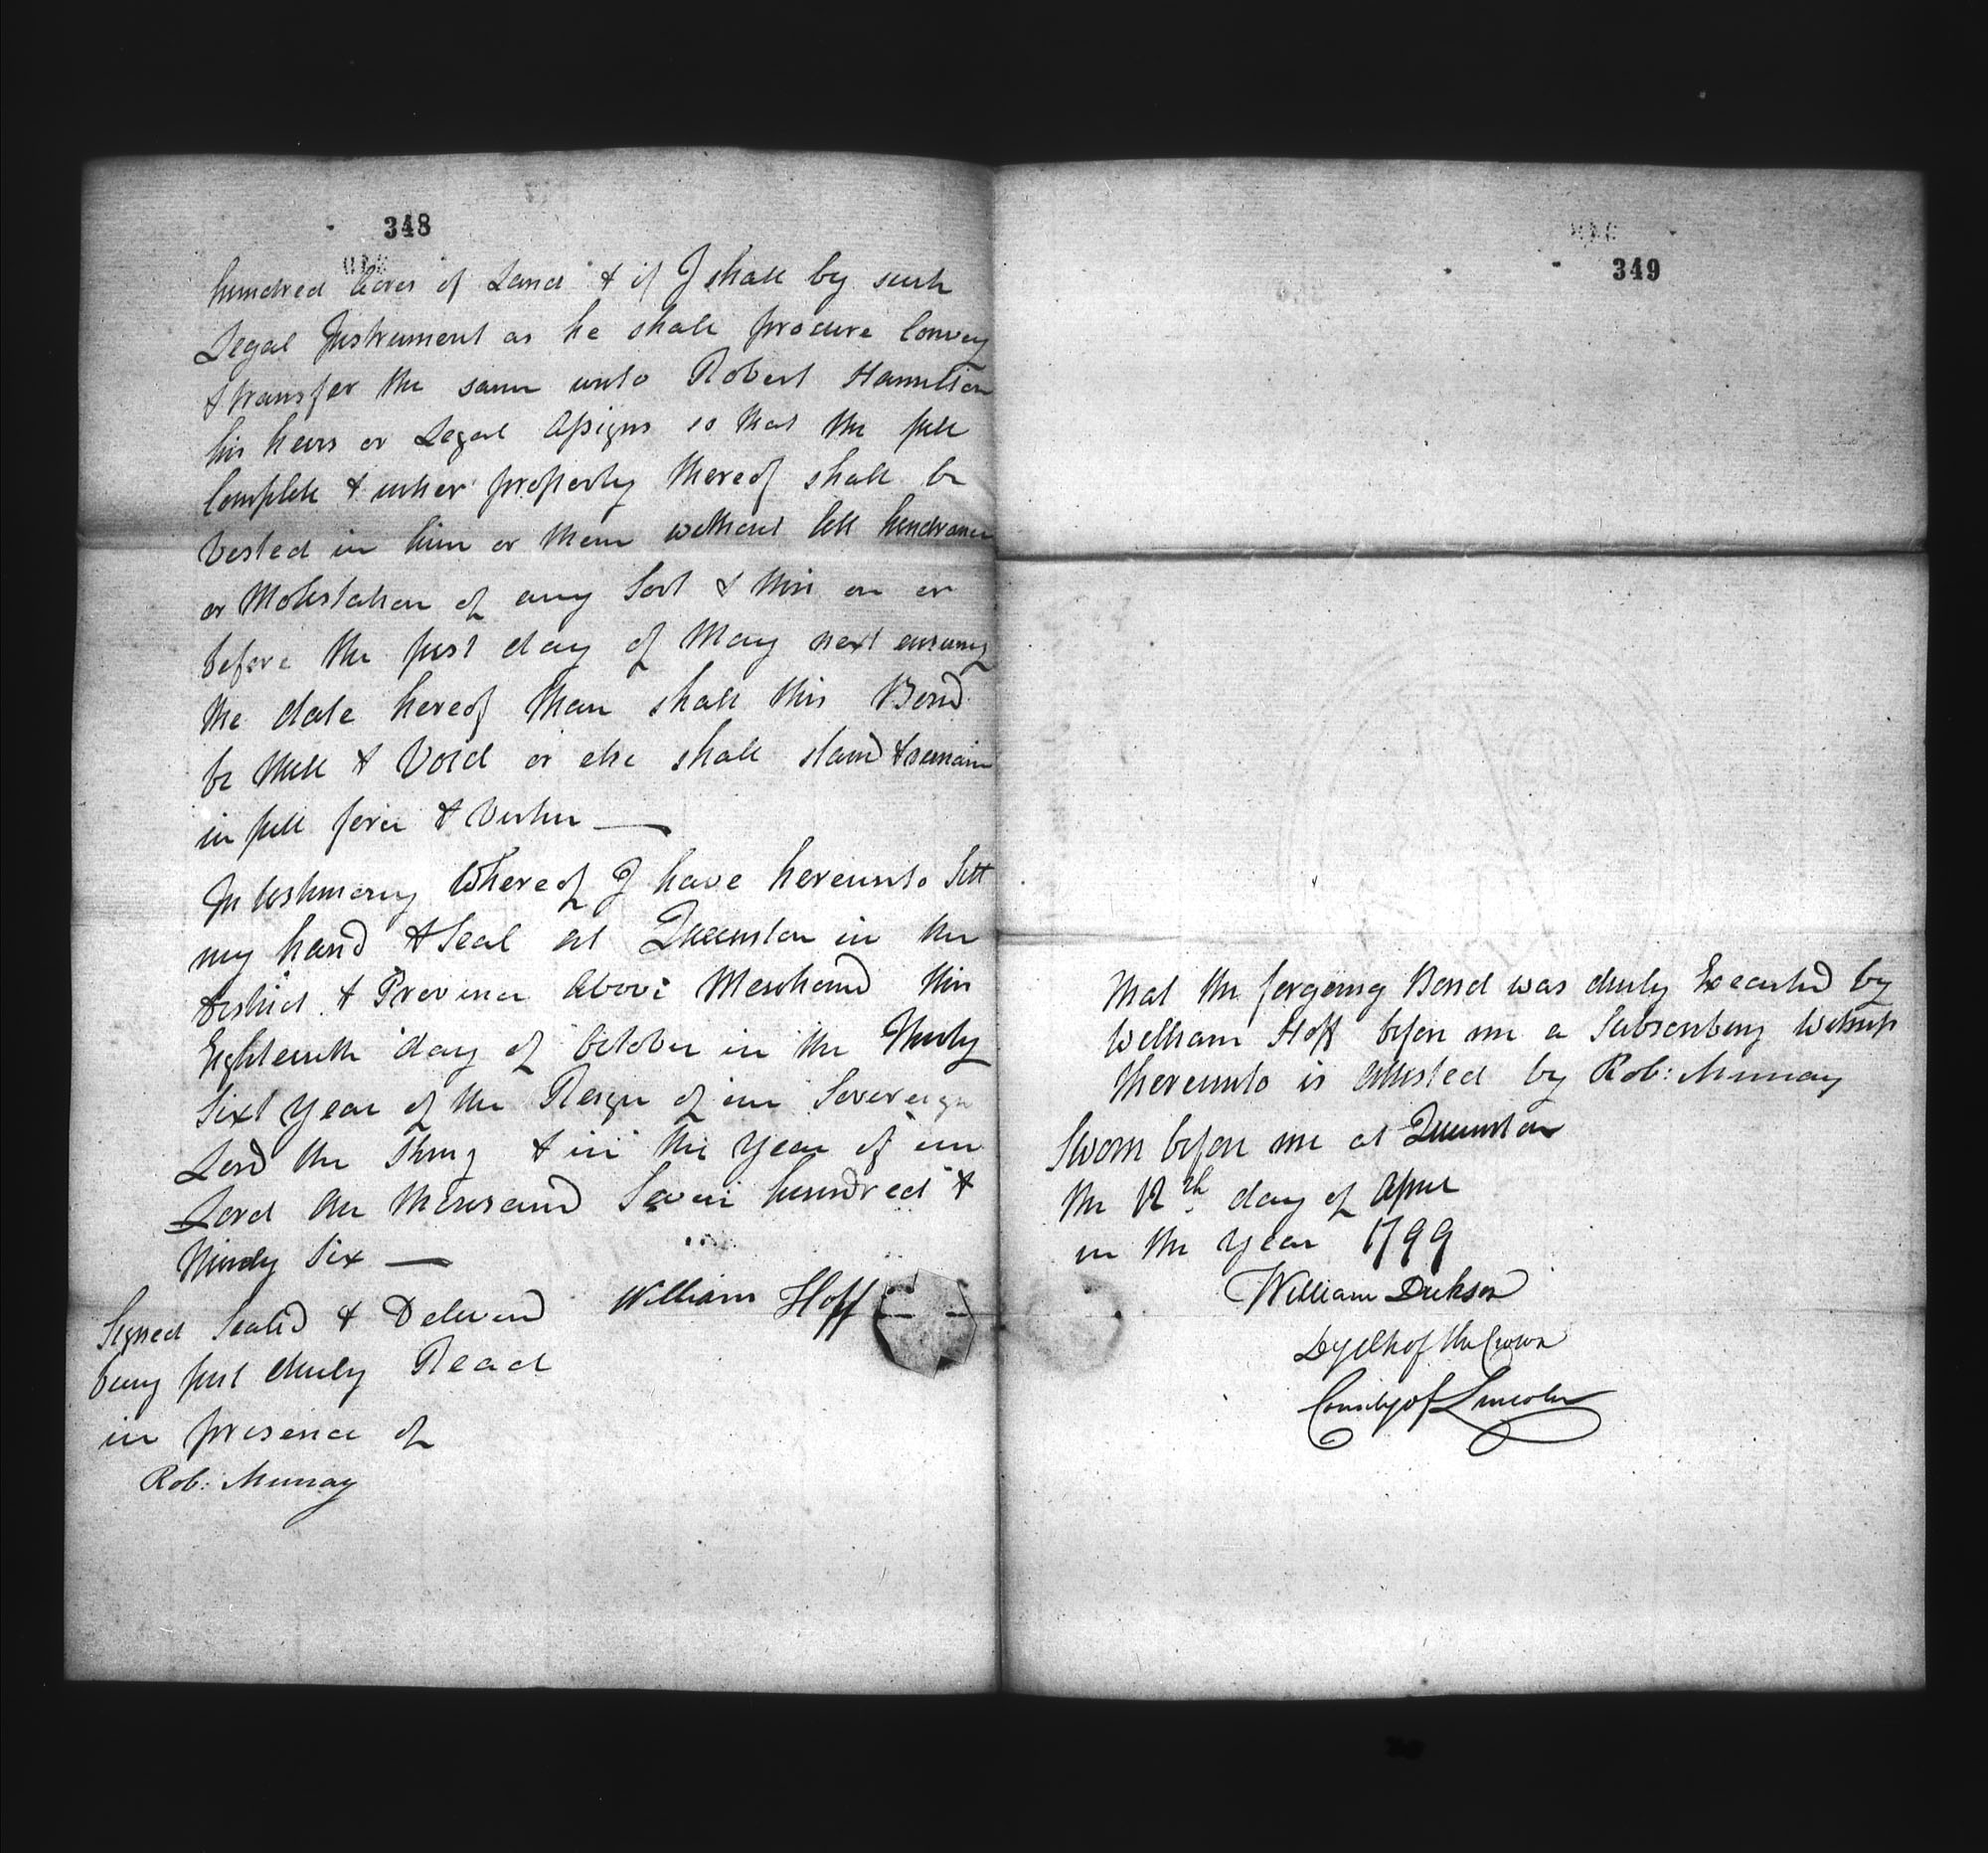 348
hundred Acres of Land & if I shall by such
Legal Instrument as he shall procure Convey
& transfer the same unto Robert Hamilton
his heirs or Legal Assigns so that the full
Complete & utter property thereof shall be
Vested in him or them without lett hendrance
or Molestation of any Sort & this on or
before the first day of May next ensuing
the date hereof than shall this Bond
be Null & Void or else shall stand & remain
in full force & Vertue —
In testimony Whereof I have hereunto Sett
my hand & Seal at Queenston in the
district & Province above Mentioned this
Eighteenth day of October in the Thirty
Sixt Year of the Reign of our Sovereign
Lord the King & in the Year of our
Lord One thousand Seven hundred &
Ninety Six —
Signed Sealed & Delivered
being first duely Read
in presence of
Rob: Murray
William Hoff
349
that the forgoing Bond was duely Executed by
William Hoff before me a Subscribing Witness
thereunto is attested by Rob: Murray
Sworn before me at Queenston
the 12th day of April
in the Year 1799
William Dickson
Dy Clk of the Crown
County of Lincoln